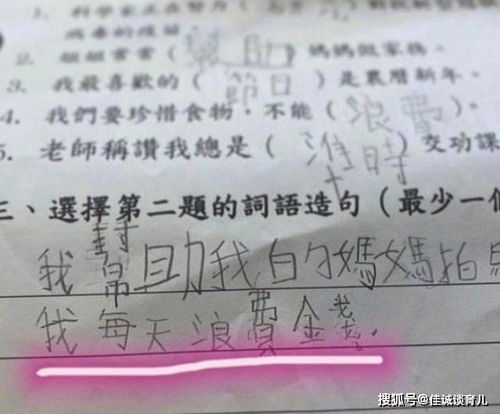 病毒的疫苗
2. 姐姐常常（幫助）媽媽做家務。
3. 我最喜歡的（節日）是農曆新年。
4. 我們要珍惜食物，不能（浪費）。
5. 老師稱讚我總是（準時）交功課
三、選擇第二題的詞語造句（最少一個
我幫助我的媽媽拍
我每天浪費金錢.
搜狐号@佳诚谈育儿